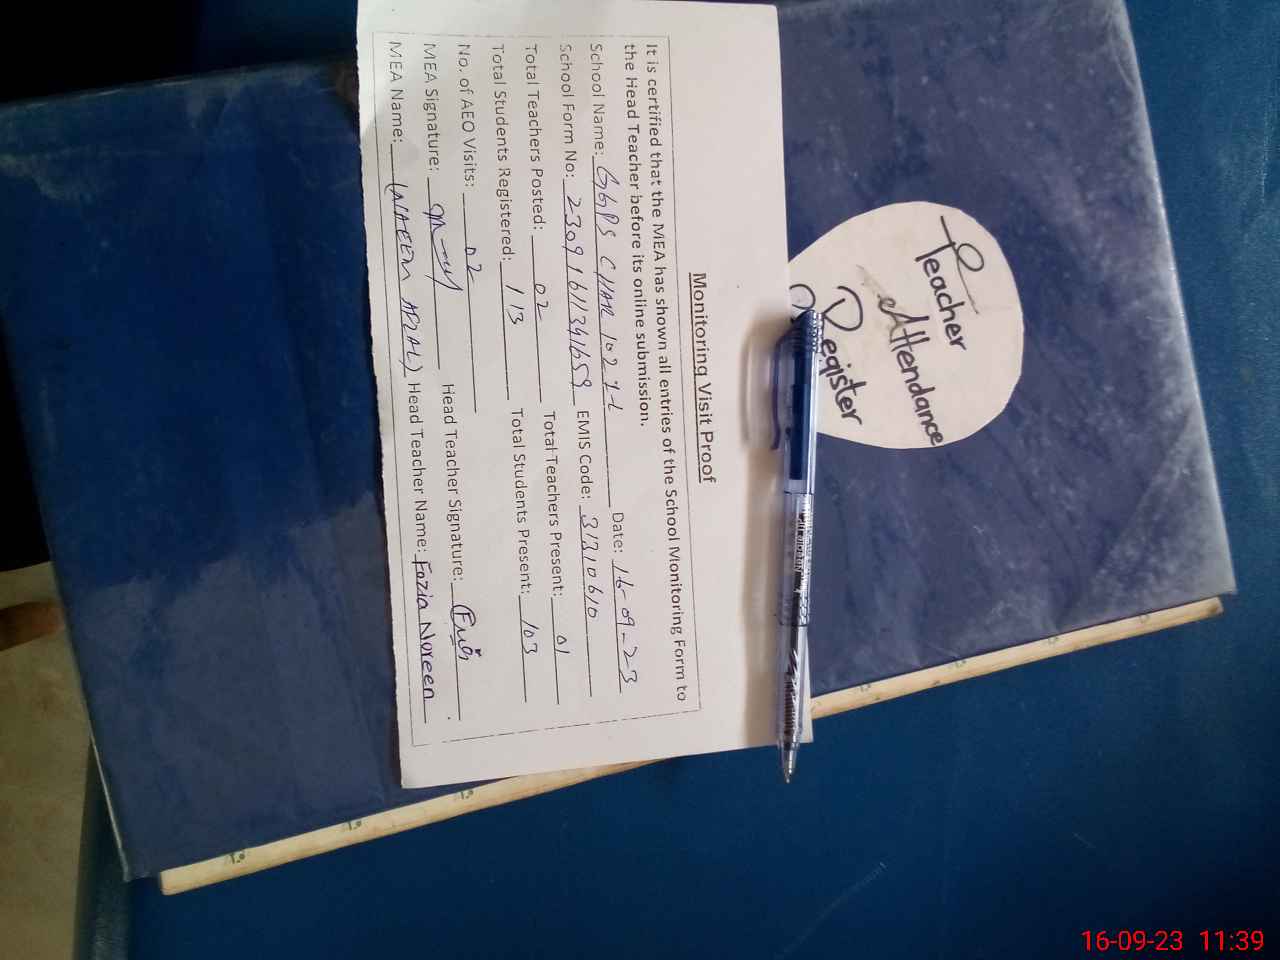 Teacher
Attendance
Register
Monitoring Visit Proof
It is certified that the MEA has shown all entries of the School Monitoring Form to
the Head Teacher before its online submission.
School Name: GGPS CHAK 102 Date: 16-09-23
School Form No: 23091611341659 EMIS Code: 31310610
Total Teachers Posted: 02 Total Teachers Present: 01
Total Students Registered: 113 Total Students Present: 103
No. of AEO Visits: 02
MEA Signature: Head Teacher Signature:
MEA Name: (NAEEM AFZAL) Head Teacher Name: Fozia Noreen
16-09-23 11:39